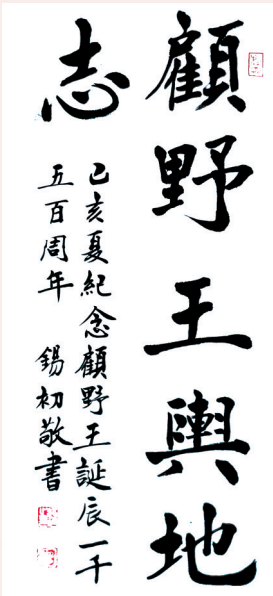 顧野王輿地
志
己亥夏紀念顧野王誕辰一千
五百周年 錫初敬書